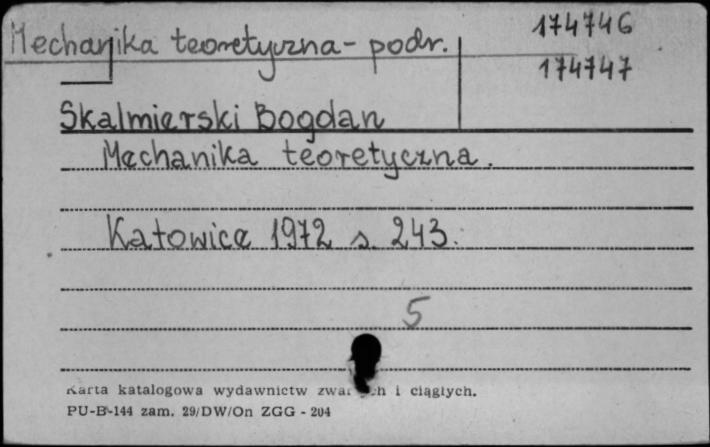 Mechanika teoretyczna - podr.
174746
174747
Skalmierski Bogdan
Mechanika teoretyczna.
Katowice 1972 s. 243.
5
Karta katalogowa wydawnictw i ciągłych.
PU-B-144 zam. 29/DW/On ZGG - 204